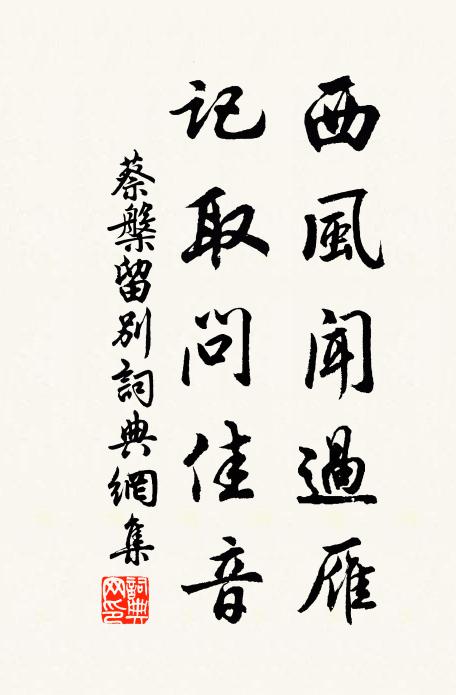 西風聞過雁
記取問佳音
蔡槃留別詞典網集
詞典网印